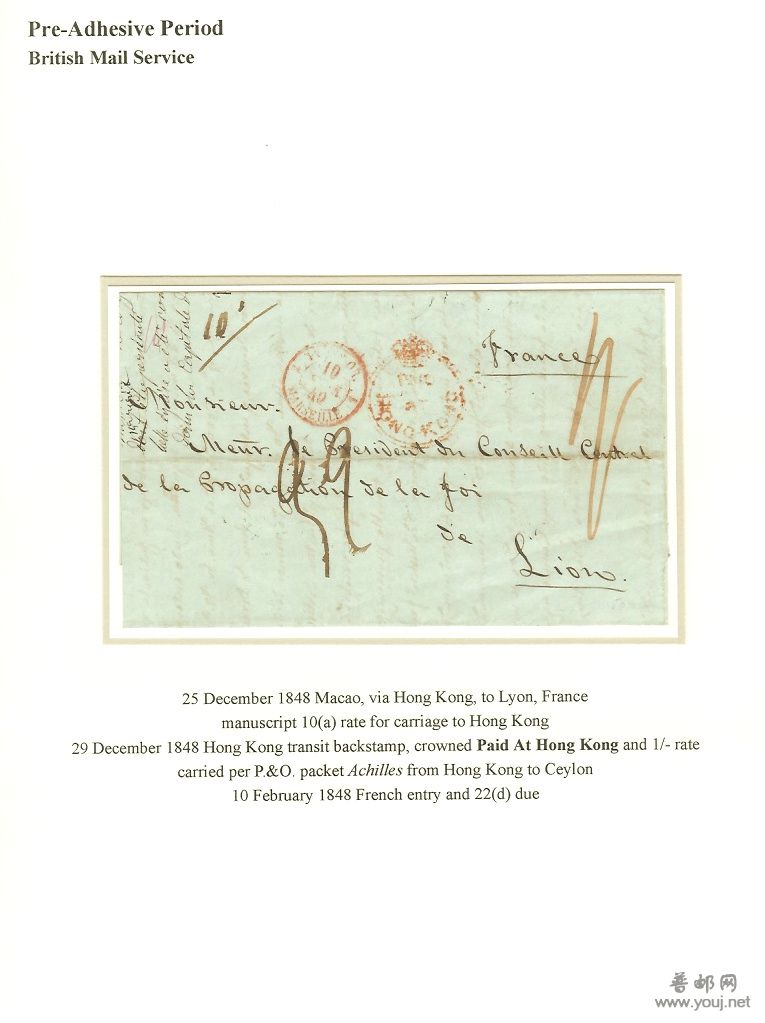 Pre-Adhesive Period
British Mail Service
10
France
Monsieur.
10
MARSEILLE
HONG KONG
Meur. le President du Conseill Central
de la Propagation de la foi
de
Lion.
25 December 1848 Macao, via Hong Kong, to Lyon, France
manuscript 10(a) rate for carriage to Hong Kong
29 December 1848 Hong Kong transit backstamp, crowned Paid At Hong Kong and 1/- rate
carried per P.&O. packet Achilles from Hong Kong to Ceylon
10 February 1848 French entry and 22(d) due
普邮网
www.youj.net